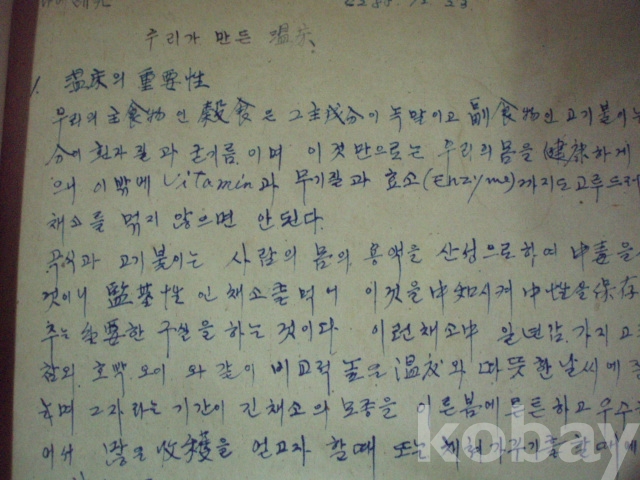 4288. 12. 23.
우리가 만든 温床
1. 温床의 重要性
우리의 主食物인 穀食은 그 主成分이 녹말이고 副食物인 고기붙이는
分이 흰자질과 굳기름이며 이것만으로는 우리의 몸을 健康하게
으니 이밖에 Vitamin과 무기질과 효소(Enzyme)까지도 고루 드려
채소를 먹지 않으면 안된다.
곡식과 고기붙이는 사람의 몸의 용액을 산성으로 하여 中毒을
것이니 塩基性인 채소를 먹어 이것을 中和시켜 中性을 保存
주는 重要한 구실을 하는 것이다. 이런 채소中 일년감, 가지 고
참외 호박 오이 와 같이 비교적 높은 温度와 따뜻한 날씨에
하며 그 자라는 기간이 긴 채소의 모종을 이른 봄에 튼튼하고 우수
어서 많은 收穫을 얻고자 할때 또는 채소가꾸기를 할때에
kobay